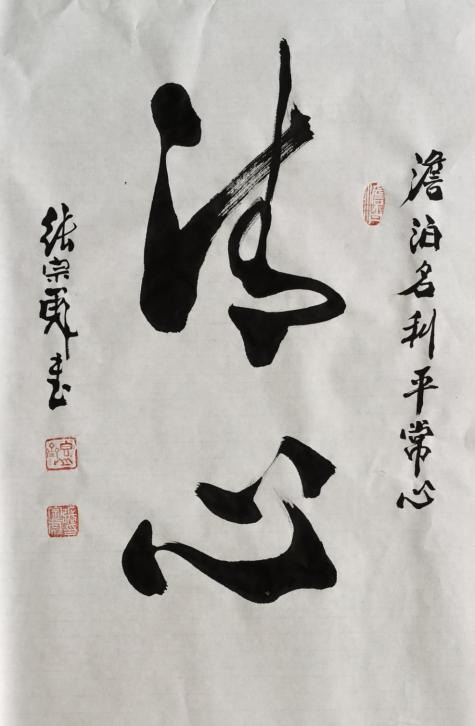 澹泊名利平常心
清心
张宗彪书